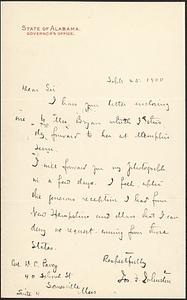 STATE OF ALABAMA.
GOVERNOR'S OFFICE.
Sept. 25. 1900
Dear Sir
I have your letter enclosing
one to Mrs Bryan which I
forward to her at Memphis
Tenn.
I will forward you my photograph
in a few days. I feel after
the generous reception I had from
New Hampshire and Mass that I can
deny no request coming from those
States.
Respectfully
Jos. F. Johnston
40 School St
Somerville
Mass